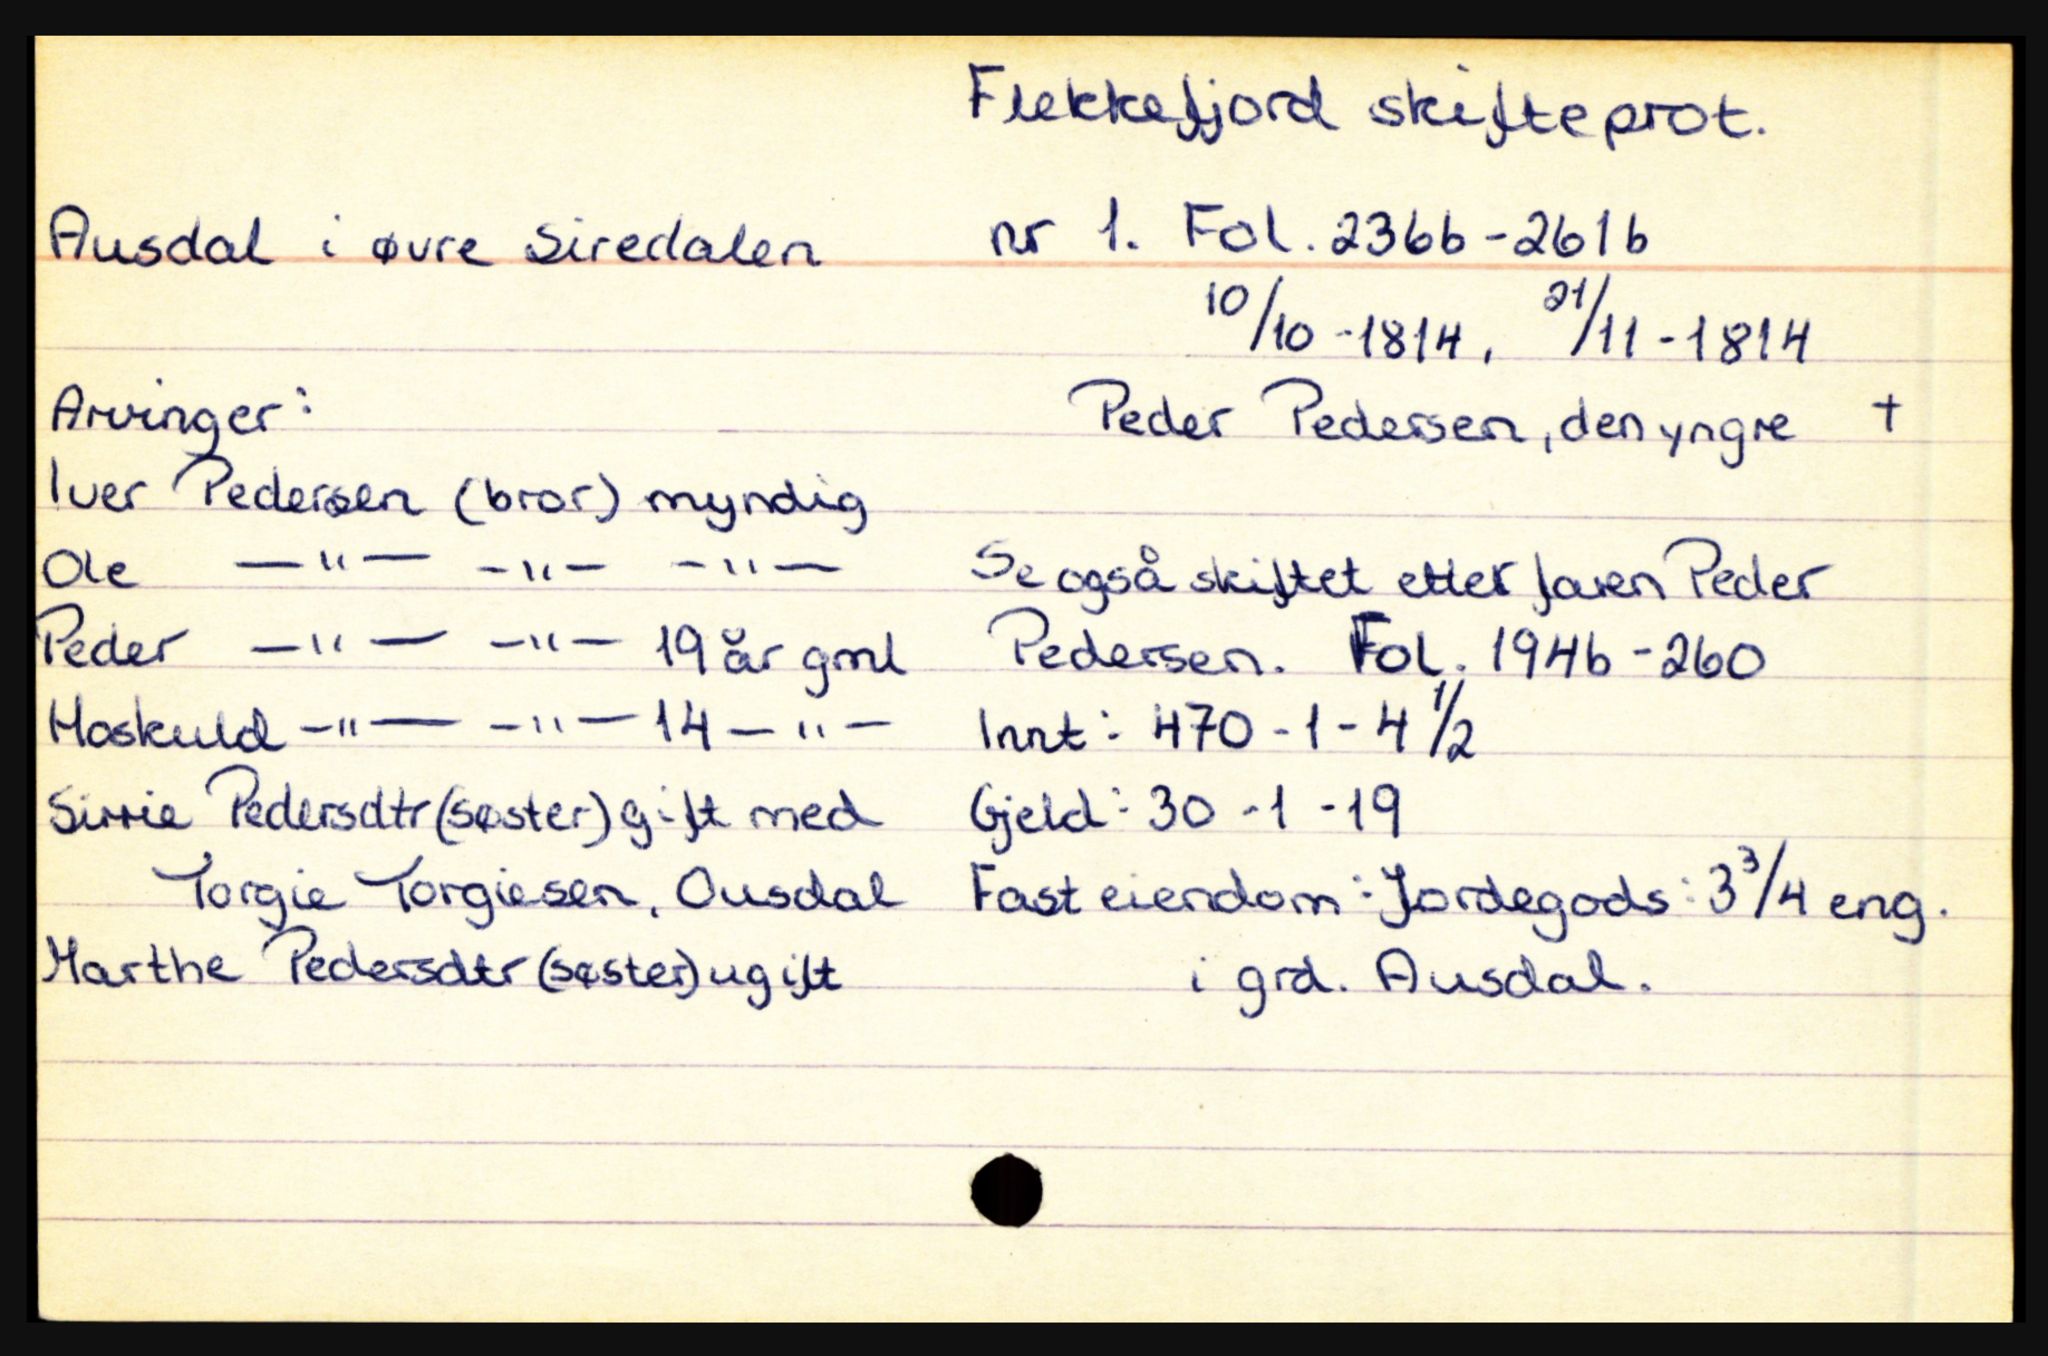 Flekkefjord skifteprot.
Ausdal i øvre Siredalen nr 1. Fol. 236b-261b
10/10-1814, 21/11-1814
Arvinger: Peder Pedersen, den yngre †
Iver Pedersen (bror) myndig
Ole —"— —"— —"— Se også skiftet etter faren Peder
Peder —"— —"— 19 år gml Pedersen. Fol. 194b-260
Hoskuld —"— —"— 14 —"— Innt: 470-1-4 1/2
Sirrie Pedersdtr (søster) gift med Gjeld: 30-1-19
Torgie Torgiesen, Ousdal Fast eiendom: Jordegods: 3 3/4 eng.
Marthe Pedersdtr (søster) ugift i grd. Ausdal.